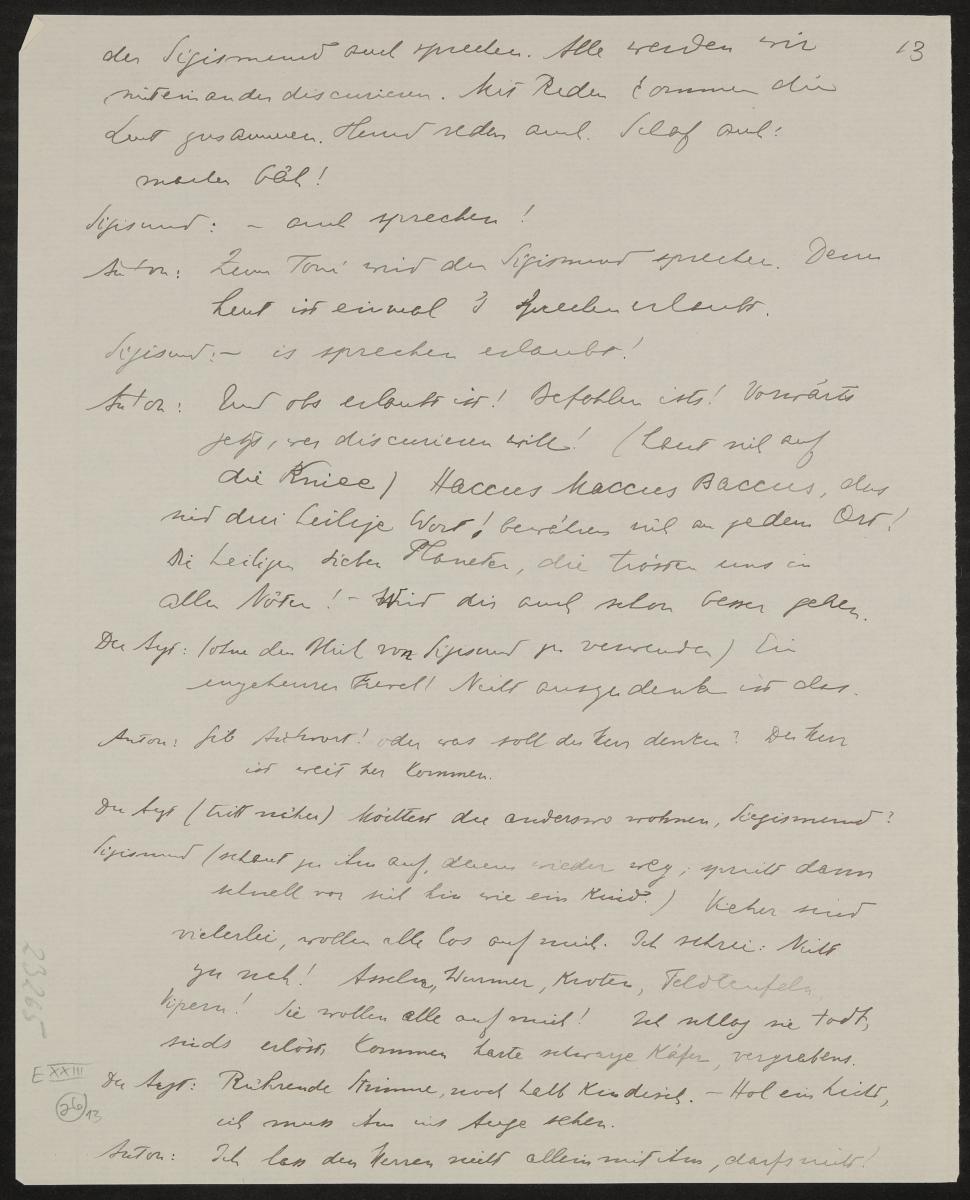 13
der Sigismund auch sprechen. Alle werden wir
miteinander discurieren. Mit Reden kommen die
Leut zusammen. Hund reden auch. Schaf auch:
machen bäh!
Sigismund: – auch sprechen!
Anton: Zum Toni wird der Sigismund sprechen. Denn
heut ist einmal Sprechen erlaubt.
Sigismund: – is sprechen erlaubt!
Anton: Und obs erlaubt ist! Befohlen ists! Vorwärts
jetzt, wer discurieren will! (haut sich auf
die Kniee) Haccus Maccus Baccus, das
sind drei heilige Wort! bewähren sich an jedem Ort!
Die heiligen sieben Planeten, die trösten uns in
allen Nöten! – Wird dir auch schon besser gehen.
Der Arzt: (ohne den Blick von Sigismund zu verwenden) Ein
ungeheurer Frevel! Nicht auszudenken ist das.
Anton: Gib Antwort! oder was soll der Herr denken? Der Herr
ist weit her kommen.
Der Arzt (tritt näher) Möchtest du anderswo wohnen, Sigismund?
Sigismund (schaut zu ihm auf, dann wieder weg; spricht dann
schnell vor sich hin wie ein Kind.) Vieher sind
vielerlei, wollen alle los auf mich. Ich schrei: Nicht
zu nah! Asseln, Würmer, Kroten, Feldteufeln,
Vipern! Sie wollen alle auf mich! Ich schlag sie todt,
sinds erlöst, kommen harte schwarze Käfer, vergrabens.
Der Arzt: Rührende Stimme, noch halb kindisch. – Hol ein Licht,
ich muss ihm ins Auge sehen.
Anton: Ich lass den Herren nicht allein mit ihm, darfs nicht!
23265
E XXIII
26 13